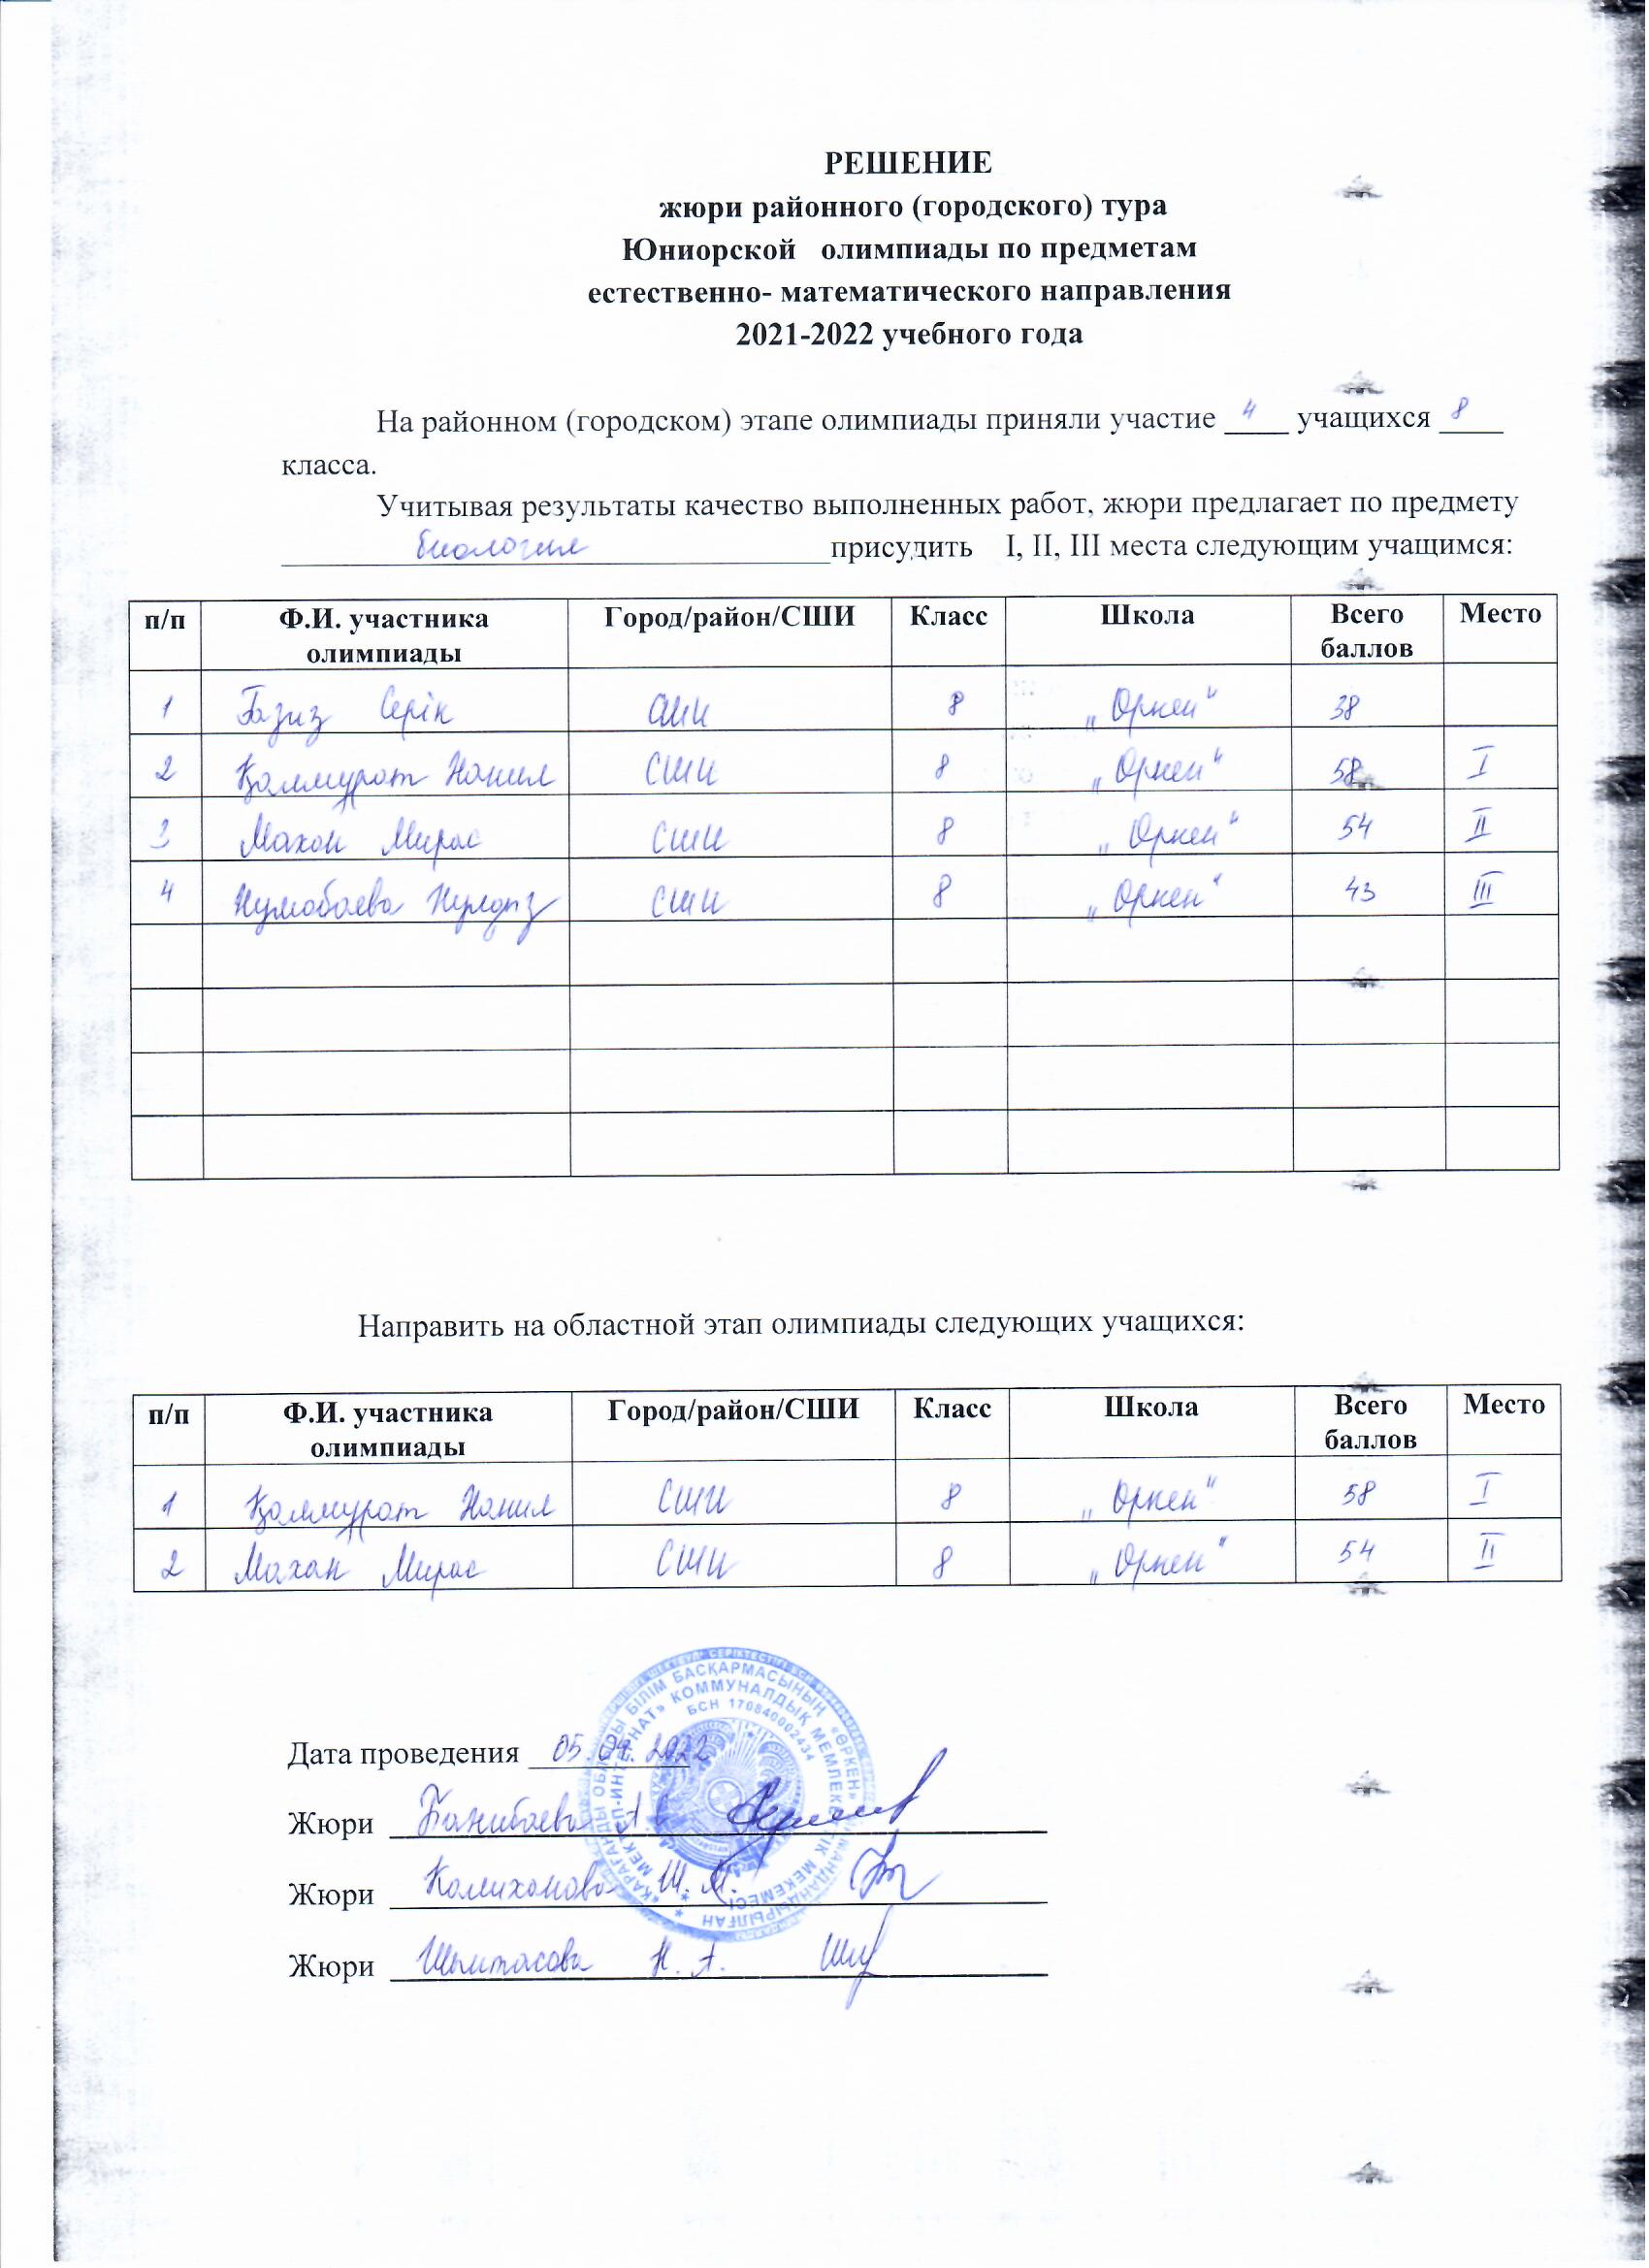 РЕШЕНИЕ
жюри районного (городского) тура
Юниорской олимпиады по предметам
естественно- математического направления
2021-2022 учебного года
На районном (городском) этапе олимпиады приняли участие 4 учащихся 8
класса.
Учитывая результаты качество выполненных работ, жюри предлагает по предмету
биология присудить I, II, III места следующим учащимся:
п/п Ф.И. участника олимпиады Город/район/СШИ Класс Школа Всего баллов Место
1 Ғазиз Серік СШИ 8 „Өркен" 38
2 Қалмұрат Наиил СШИ 8 „Өркен" 58 I
3 Махан Мирас СШИ 8 „Өркен" 54 II
4 СШИ 8 „Өркен" 43 III
Направить на областной этап олимпиады следующих учащихся:
п/п Ф.И. участника олимпиады Город/район/СШИ Класс Школа Всего баллов Место
1 Қалмұрат СШИ 8 „Өркен" 58 I
2 Махан Мирас СШИ 8 „Өркен" 54 II
БІЛІМ БАСҚАРМАСЫНЫҢ «ӨРКЕН»
КОММУНАЛДЫҚ МЕМЛЕКЕТТІК МЕКЕМЕСІ
БСН 170840002434
Дата проведения 05.04.2022
Жюри
Жюри Калиханова Ш.М.
Жюри Шынтасова Н.А.